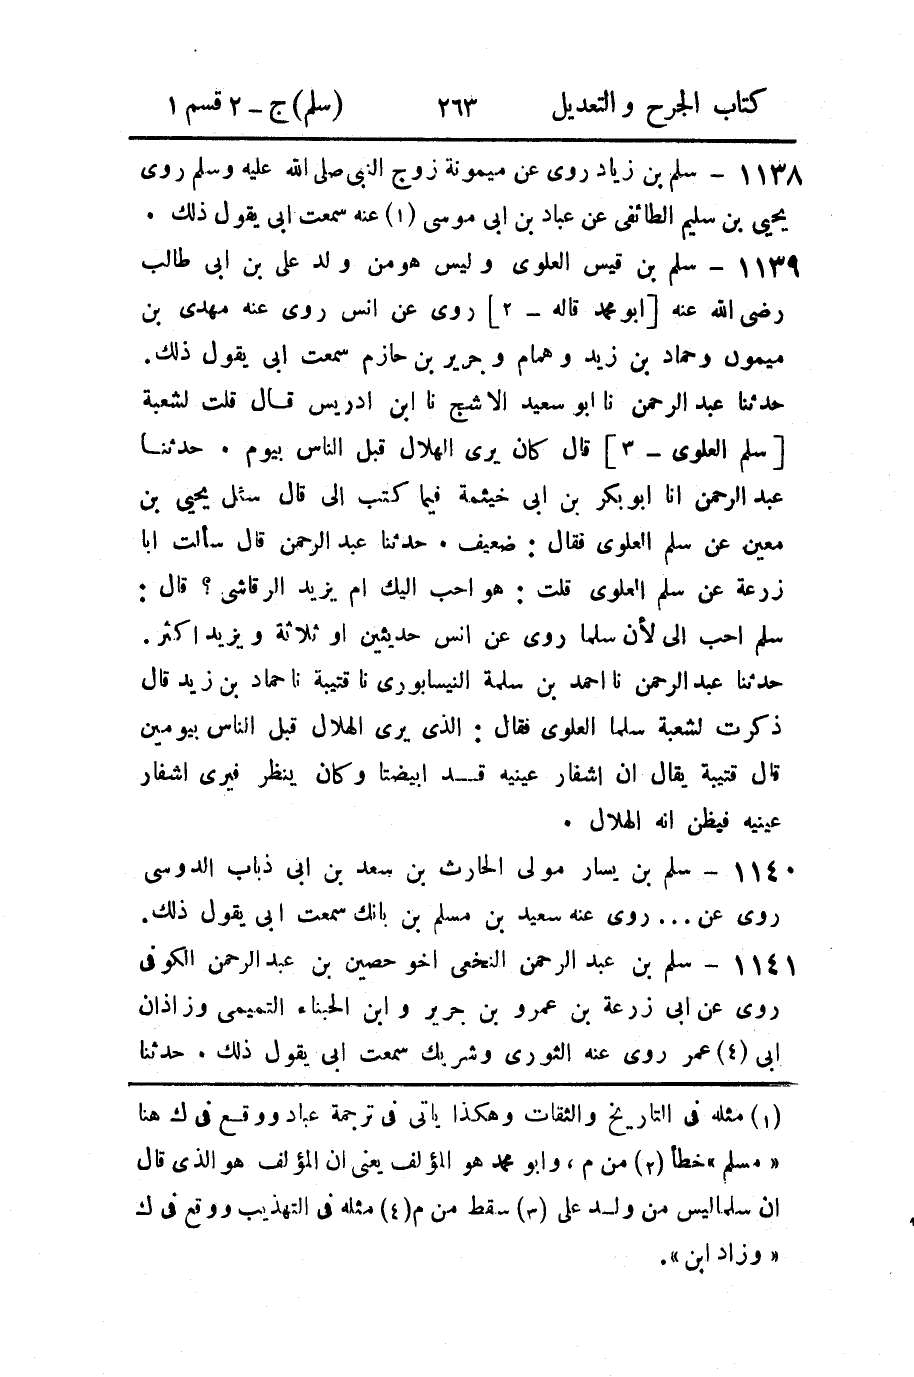 كتاب الجرح والتعديل ٢٦٣ (سلم) ج - ٢ قسم ١
١١٣٨ - سلم بن زياد روى عن ميمونة زوج النبى صلى الله عليه وسلم روى
يحيى بن سليم الطائفى عن عباد بن ابى موسى (١) عنه سمعت ابى يقول ذلك .
١١٣٩ - سلم بن قيس العلوى وليس هو من ولد على بن ابى طالب
رضى الله عنه [ابو محمد قاله - ٢] روى عن انس روى عنه مهدى بن
ميمون وحماد بن زيد وهمام وجرير بن حازم سمعت ابى يقول ذلك.
حدثنا عبد الرحمن نا ابو سعيد الاشج نا ابن ادريس قال قلت لشعبة
[سلم العلوى - ٣] قال كان يرى الهلال قبل الناس بيوم . حدثنا
عبد الرحمن انا ابو بكر بن ابى خيثمة فيما كتب الى قال سئل يحيى بن
معين عن سلم العلوى فقال : ضعيف . حدثنا عبد الرحمن قال سألت ابا
زرعة عن سلم العلوى قلت : هو احب اليك ام يزيد الرقاشى ؟ قال :
سلم احب الى لأن سلما روى عن انس حديثين او ثلاثة ويزيد اكثر.
حدثنا عبد الرحمن نا احمد بن سلمة النيسابورى نا قتيبة نا حماد بن زيد قال
ذكرت لشعبة سلما العلوى فقال : الذى يرى الهلال قبل الناس بيومين
قال قتيبة يقال ان اشفار عينيه قد ابيضتا وكان ينظر فيرى اشفار
عينيه فيظن انه الهلال .
١١٤٠ - سلم بن يسار مولى الحارث بن سعد بن ابى ذباب الدوسى
روى عن ... روى عنه سعيد بن مسلم بن بانك سمعت ابى يقول ذلك.
١١٤١ - سلم بن عبد الرحمن النخعى اخو حصين بن عبد الرحمن الكوفى
روى عن ابى زرعة بن عمرو بن جرير وابن الحبناء التميمى وزاذان
ابى (٤) عمر روى عنه الثورى وشريك سمعت ابى يقول ذلك . حدثنا
(١) مثله فى التاريخ والثقات وهكذا ياتى فى ترجمة عباد ووقع فى ك هنا
« مسلم » خطأ (٢) من م ، وابو محمد هو المؤلف يعنى ان المؤلف هو الذى قال
ان سلما ليس من ولد على (٣) سقط من م (٤) مثله فى التهذيب ووقع فى ك
« وزاد ابن ».